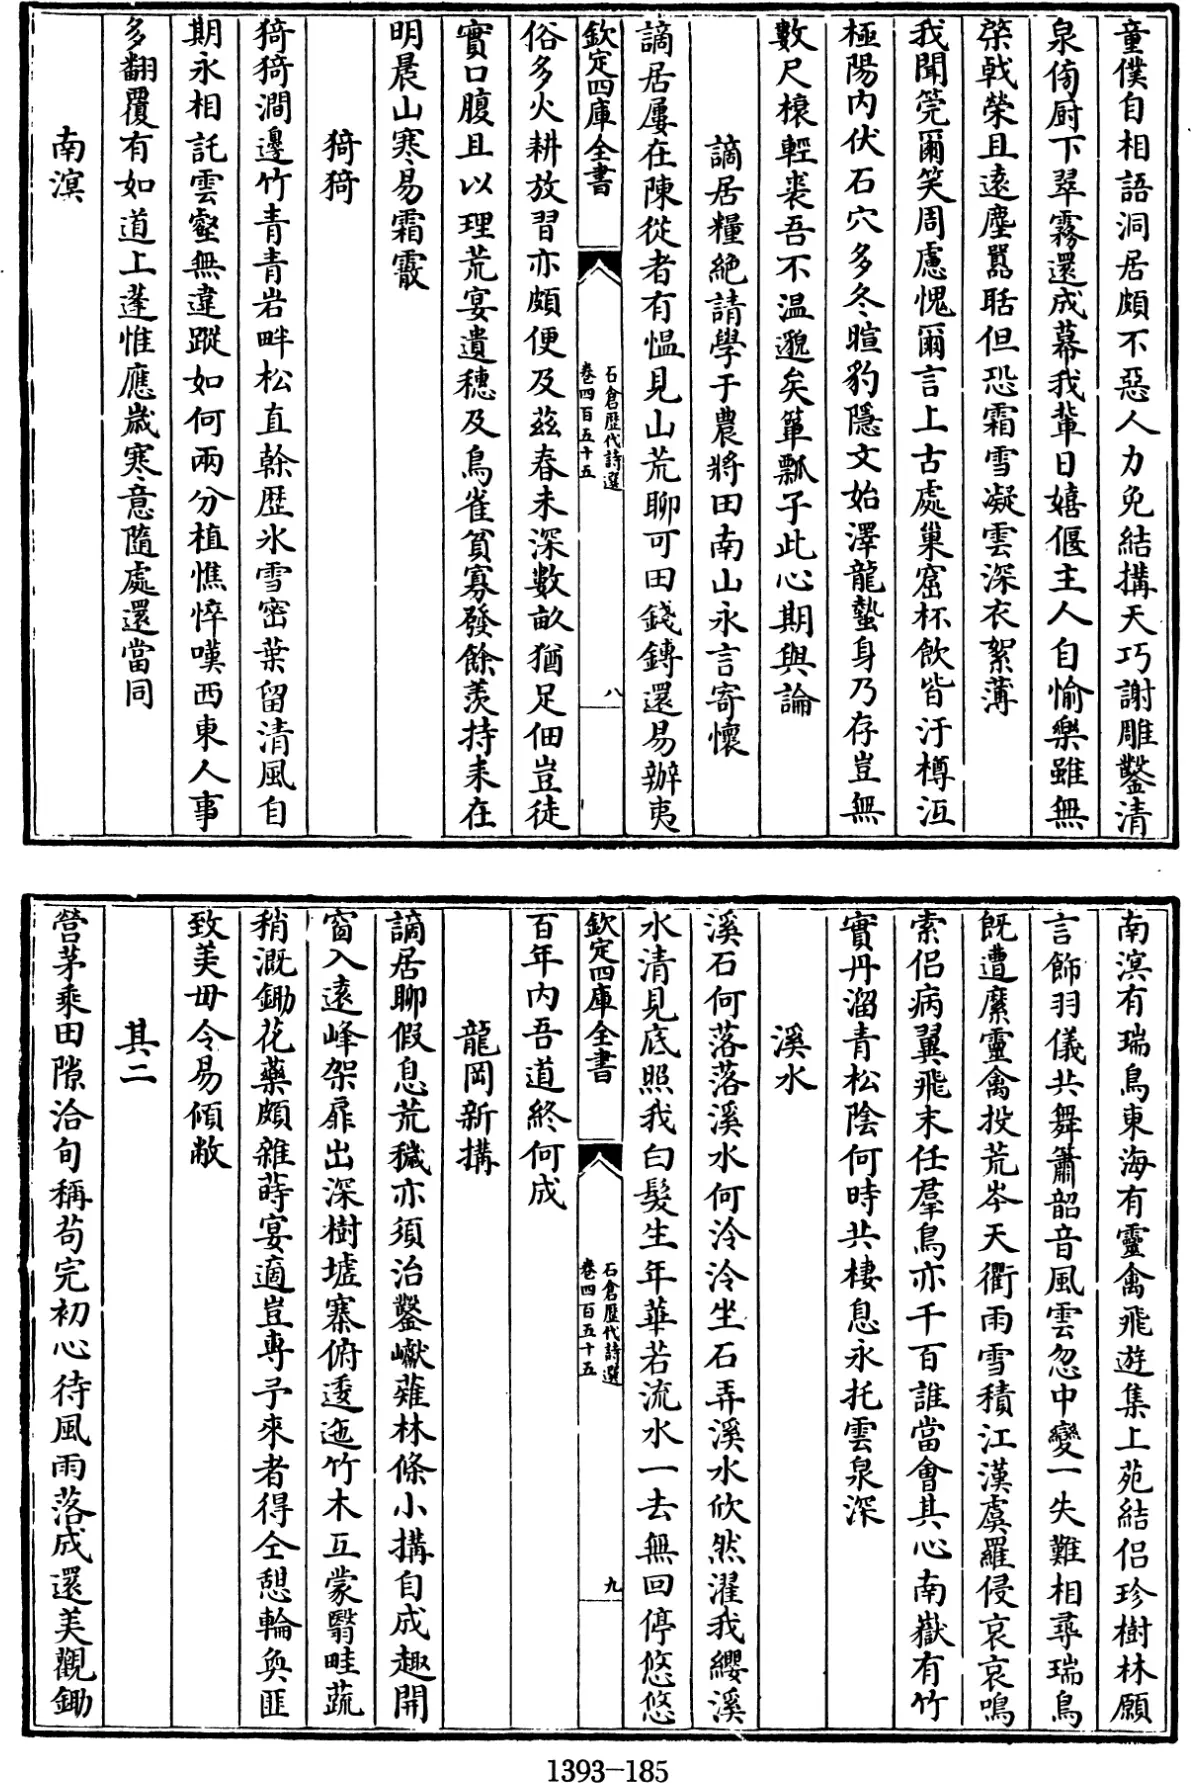 童僕自相語洞居頗不惡人力免結搆天巧謝雕鑿清
泉傍厨下翠霧還成幕我輩日嬉偃主人自愉樂雖無
棨戟榮且遠塵囂聒但恐霜雪凝雲深衣絮薄
我聞莞爾笑周慮愧爾言上古處巢窟杯飲皆汙樽沍
極陽内伏石穴多冬暄豹隱文始澤龍蟄身乃存豈無
數尺榱輕裘吾不温邈矣簞瓢子此心期與論
謫居糧絶請學于農將田南山永言寄懷
謫居屢在陳從者有愠見山荒聊可田錢鎛還易辦夷
欽定四庫全書
石倉歷代詩選
卷四百五十五
八
俗多火耕放習亦頗便及兹春未深數畝猶足佃豈徒
實口腹且以理荒宴遺穗及鳥雀貧寡發餘羨持耒在
明晨山寒易霜霰
猗猗
猗猗澗邊竹青青岩畔松直幹歴氷雪密葉留清風自
期永相託雲壑無違蹤如何兩分植憔悴嘆西東人事
多翻覆有如道上蓬惟應歳寒意隨處還當同
南溟
南溟有瑞鳥東海有靈禽飛遊集上苑結侣珍樹林願
言飾羽儀共舞簫韶音風雲忽中變一失難相尋瑞鳥
既遭縻靈禽投荒岑天衢雨雪積江漢虞羅侵哀哀鳴
索侣病翼飛未任羣鳥亦千百誰當會其心南嶽有竹
實丹溜青松陰何時共棲息永托雲泉深
溪水
溪石何落落溪水何泠泠坐石弄溪水欣然濯我纓溪
水清見底照我白髮生年華若流水一去無回停悠悠
欽定四庫全書
石倉歷代詩選
卷四百五十五
九
百年内吾道終何成
龍岡新搆
謫居聊假息荒穢亦須治鑿巘薙林條小搆自成趣開
窗入遠峰架扉出深樹墟寨俯逶迤竹木互蒙翳畦蔬
稍溉鋤花藥頗雜蒔宴適豈専予來者得仝憩輪奐匪
致美毋令易傾敝
其二
營茅乘田隙洽旬稱苟完初心待風雨落成還美觀鋤
1393—185